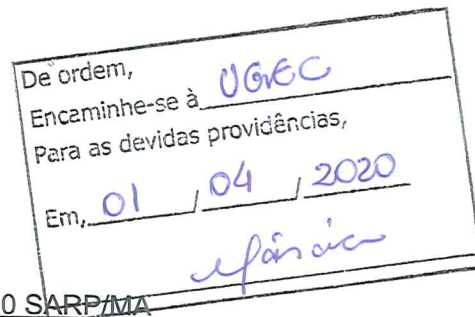 De ordem,
Encaminhe-se à UGEC
Para as devidas providências,
Em, 01 / 04 / 2020
Márcia
0 SARP/MA